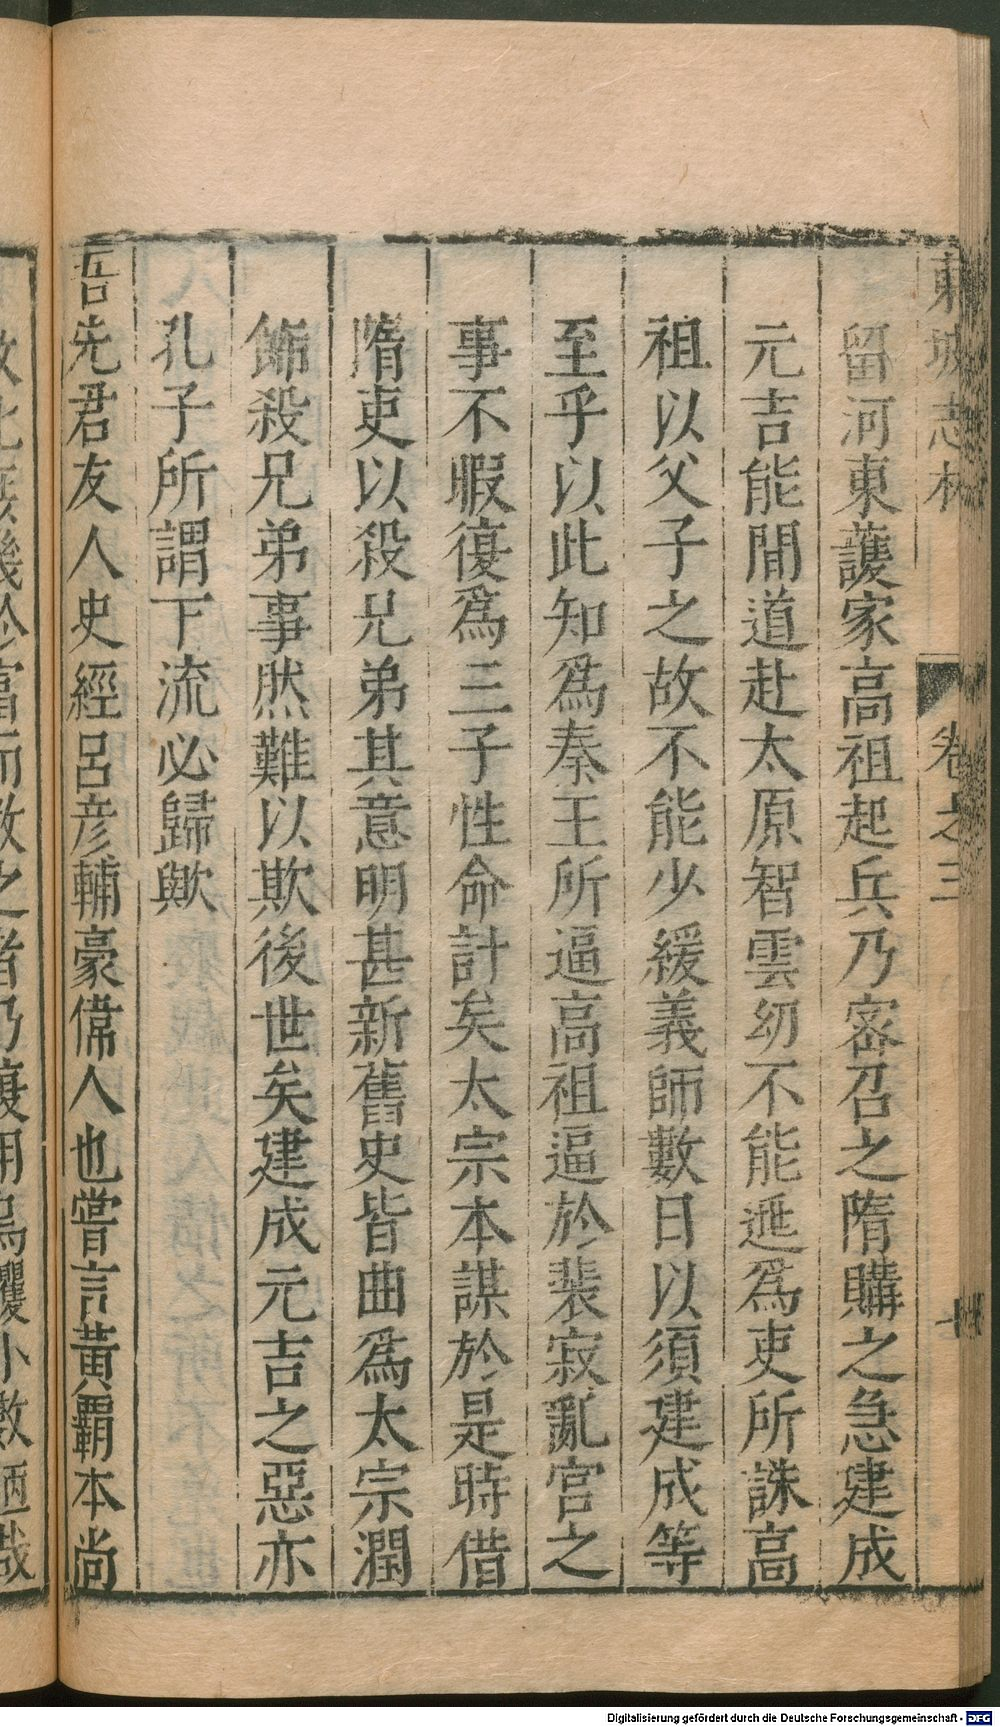 東坡志林 卷之三 七
留河東護家高祖起兵乃密召之隋購之急建成
元吉能間道赴太原智雲幼不能逃爲吏所誅高
祖以父子之故不能少緩義師數日以須建成等
至乎以此知爲秦王所逼高祖逼於裴寂亂宫之
事不暇復爲三子性命計矣太宗本謀於是時借
隋吏以殺兄弟其意明甚新舊史皆曲爲太宗潤
飾殺兄弟事然難以欺後世矣建成元吉之惡亦
孔子所謂下流必歸歟
吾先君友人史經吕彦輔豪偉人也嘗言黃霸本尚
而教之者乃復用烏攫小數陋哉
Digitalisierung gefördert durch die Deutsche Forschungsgemeinschaft - DFG